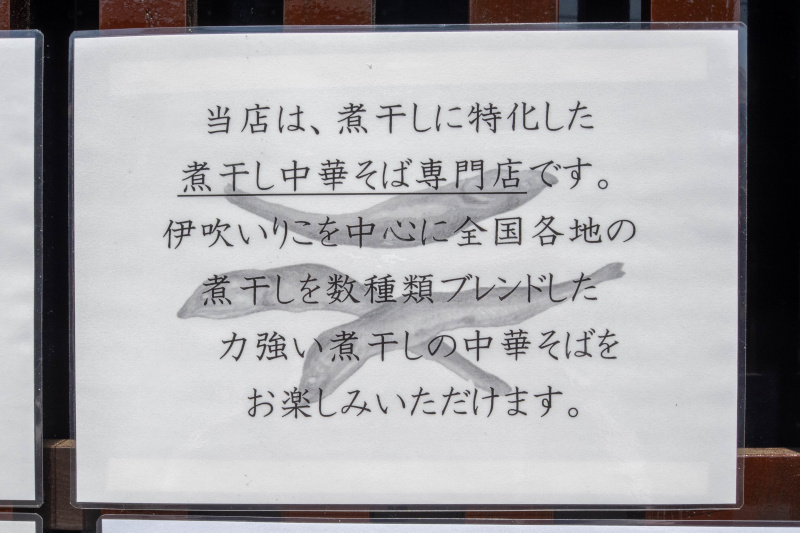 当店は、煮干しに特化した
煮干し中華そば専門店です。
伊吹いりこを中心に全国各地の
煮干しを数種類ブレンドした
力強い煮干しの中華そばを
お楽しみいただけます。